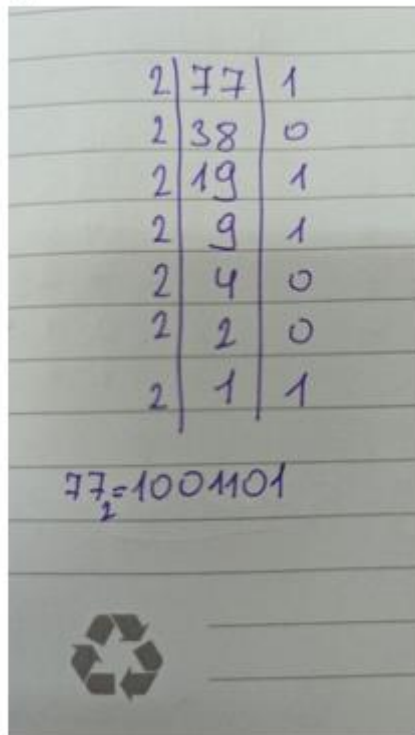 2 | 77 | 1
2 | 38 | 0
2 | 19 | 1
2 | 9 | 1
2 | 4 | 0
2 | 2 | 0
2 | 1 | 1
77₂=1001101